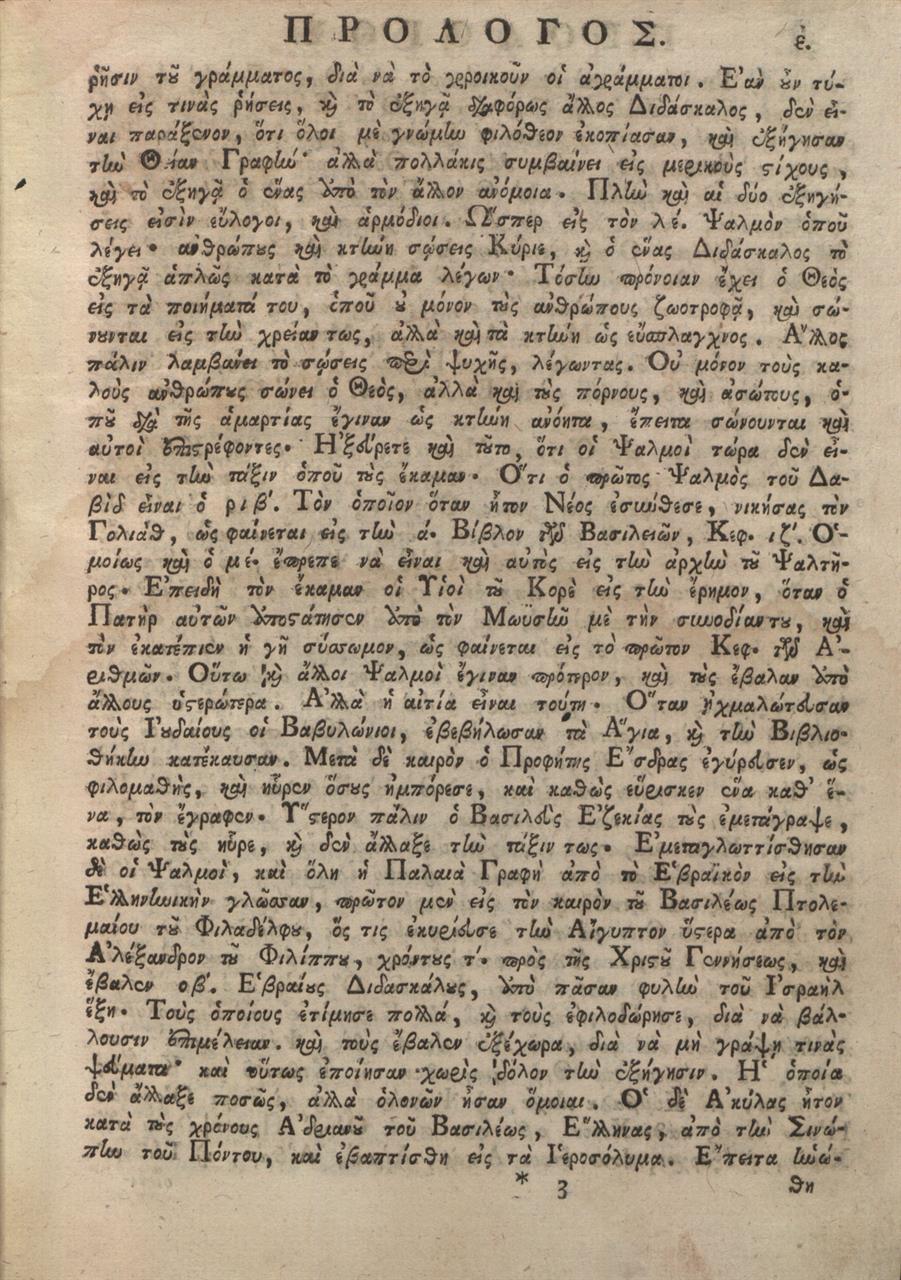 ΠΡΟΛΟΓΟΣ. έ.
ῥῆσιν τοῦ γράμματος, διὰ νὰ τὸ γροικοῦν οἱ ἀγράμματοι. Ἐὰν οὖν τύ-
χῃ εἰς τινὰς ῥήσεις, καὶ τὸ ἐξηγᾷ διαφόρως ἄλλος Διδάσκαλος, δὲν εἶ-
ναι παράξενον, ὅτι ὅλοι μὲ γνώμην φιλόθεον ἐκοπίασαν, καὶ ἐξήγησαν
τὴν Θείαν Γραφήν· ἀλλὰ πολλάκις συμβαίνει εἰς μερικοὺς στίχους,
καὶ τὸ ἐξηγᾷ ὁ ἕνας ὑπὸ τὸν ἄλλον ἀνόμοια. Πλὴν καὶ αἱ δύο ἐξηγή-
σεις εἰσὶν εὔλογοι, καὶ ἁρμόδιοι. Ὥσπερ εἰς τὸν λέ. Ψαλμὸν ὁποῦ
λέγει· ἀνθρώπους καὶ κτήνη σώσεις Κύριε, καὶ ὁ ἕνας Διδάσκαλος τὸ
ἐξηγᾷ ἁπλῶς κατὰ τὸ γράμμα λέγων· Τόσην πρόνοιαν ἔχει ὁ Θεὸς
εἰς τὰ ποιήματά του, ὁποῦ οὐ μόνον τοὺς ἀνθρώπους ζωοτροφᾷ, καὶ σώ-
νουνται εἰς τὴν χρείαν τως, ἀλλὰ καὶ τὰ κτήνη ὡς εὔσπλαγχνος. Ἄλλος
πάλιν λαμβάνει τὸ σώσεις περὶ ψυχῆς, λέγωντας. Οὐ μόνον τοὺς κα-
λοὺς ἀνθρώπους σώνει ὁ Θεὸς, ἀλλὰ καὶ τοὺς πόρνους, καὶ ἀσώτους, ὁ-
ποῦ διὰ τῆς ἁμαρτίας ἔγιναν ὡς κτήνη ἀνόητα, ἔπειτα σώνουνται καὶ
αὐτοὶ ἐπιστρέφοντες. Ἠξεύρετε καὶ τοῦτο, ὅτι οἱ Ψαλμοὶ τώρα δὲν εἶ-
ναι εἰς τὴν τάξιν ὁποῦ τοὺς ἔκαμαν. Ὅτι ὁ πρῶτος Ψαλμὸς τοῦ Δα-
βὶδ εἶναι ὁ ριβ΄. Τὸν ὁποῖον ὅταν ἦτον Νέος ἐσυνίθεσε, νικήσας τὸν
Γολιάθ, ὡς φαίνεται εἰς τὴν ά. Βίβλον τῶν Βασιλειῶν, Κεφ. ιζ΄. Ὁ-
μοίως καὶ ὁ μέ. ἔπρεπε νὰ εἶναι καὶ αὐτὸς εἰς τὴν ἀρχὴν τοῦ Ψαλτῆ-
ρος. Ἐπειδὴ τὸν ἔκαμαν οἱ Υἱοὶ τοῦ Κορὲ εἰς τὴν ἔρημον, ὅταν ὁ
Πατὴρ αὐτῶν ἀποστάτησεν ἀπὸ τὸν Μωϋσῆν μὲ τὴν συνοδίαν του, καὶ
τὸν ἐκατέπιεν ἡ γῆ σύσσωμον, ὡς φαίνεται εἰς τὸ πρῶτον Κεφ. τῶν Ἀ-
ριθμῶν. Οὕτω καὶ ἄλλοι Ψαλμοὶ ἔγιναν πρότερον, καὶ τοὺς ἔβαλαν ἀπὸ
ἄλλους ὑστερώτερα. Ἀλλὰ ἡ αἰτία εἶναι τούτη. Ὅταν ᾐχμαλώτευσαν
τοὺς Ἰουδαίους οἱ Βαβυλώνιοι, ἐβεβήλωσαν τὰ Ἅγια, καὶ τὴν Βιβλιο-
θήκην κατέκαυσαν. Μετὰ δὲ καιρὸν ὁ Προφήτης Ἔσδρας ἐγύρευσεν, ὡς
φιλομαθὴς, καὶ ηὗρεν ὅσους ἠμπόρεσε, καὶ καθὼς εὕρισκεν ἕνα καθ' ἕ-
να, τὸν ἔγραφεν. Ὕστερον πάλιν ὁ Βασιλεὺς Ἐζεκίας τοὺς ἐμετάγραψε,
καθὼς τοὺς ηὗρε, καὶ δὲν ἄλλαξε τὴν τάξιν τως. Ἐμεταγλωττίσθησαν
δὲ οἱ Ψαλμοὶ, καὶ ὅλη ἡ Παλαιὰ Γραφὴ ἀπὸ τὸ Ἑβραϊκὸν εἰς τὴν
Ἑλληνωικὴν γλῶσσαν, πρῶτον μὲν εἰς τὸν καιρὸν τοῦ Βασιλέως Πτολε-
μαίου τοῦ Φιλαδέλφου, ὅς τις ἐκυρίευσε τὴν Αἴγυπτον ὕστερα ἀπὸ τὸν
Ἀλέξανδρον τοῦ Φιλίππου, χρόνους τ΄. πρὸς τῆς Χριστοῦ Γεννήσεως, καὶ
ἔβαλεν οβ΄. Ἑβραίους Διδασκάλους, ἀπὸ πᾶσαν φυλὴν τοῦ Ἰσραὴλ
ἕξη. Τοὺς ὁποίους ἐτίμησε πολλά, καὶ τοὺς ἐφιλοδώρησε, διὰ νὰ βάλ-
λουσιν ἐπιμέλειαν. καὶ τοὺς ἔβαλεν ἐξέχωρα, διὰ νὰ μὴ γράψῃ τινὰς
ψεύματα· καὶ οὕτως ἐποίησαν χωρὶς δόλον τὴν ἐξήγησιν. Ἡ ὁποία
δὲν ἄλλαξε ποσῶς, ἀλλὰ ὁλονῶν ἦσαν ὅμοιαι. Ὁ δὲ Ἀκύλας ἦτον
κατὰ τοὺς χρόνους Ἀδριανοῦ τοῦ Βασιλέως, Ἕλληνας, ἀπὸ τὴν Σινώ-
πην τοῦ Πόντου, καὶ ἐβαπτίσθη εἰς τὰ Ἱεροσόλυμα. Ἔπειτα ἠνώ-
* 3 θη